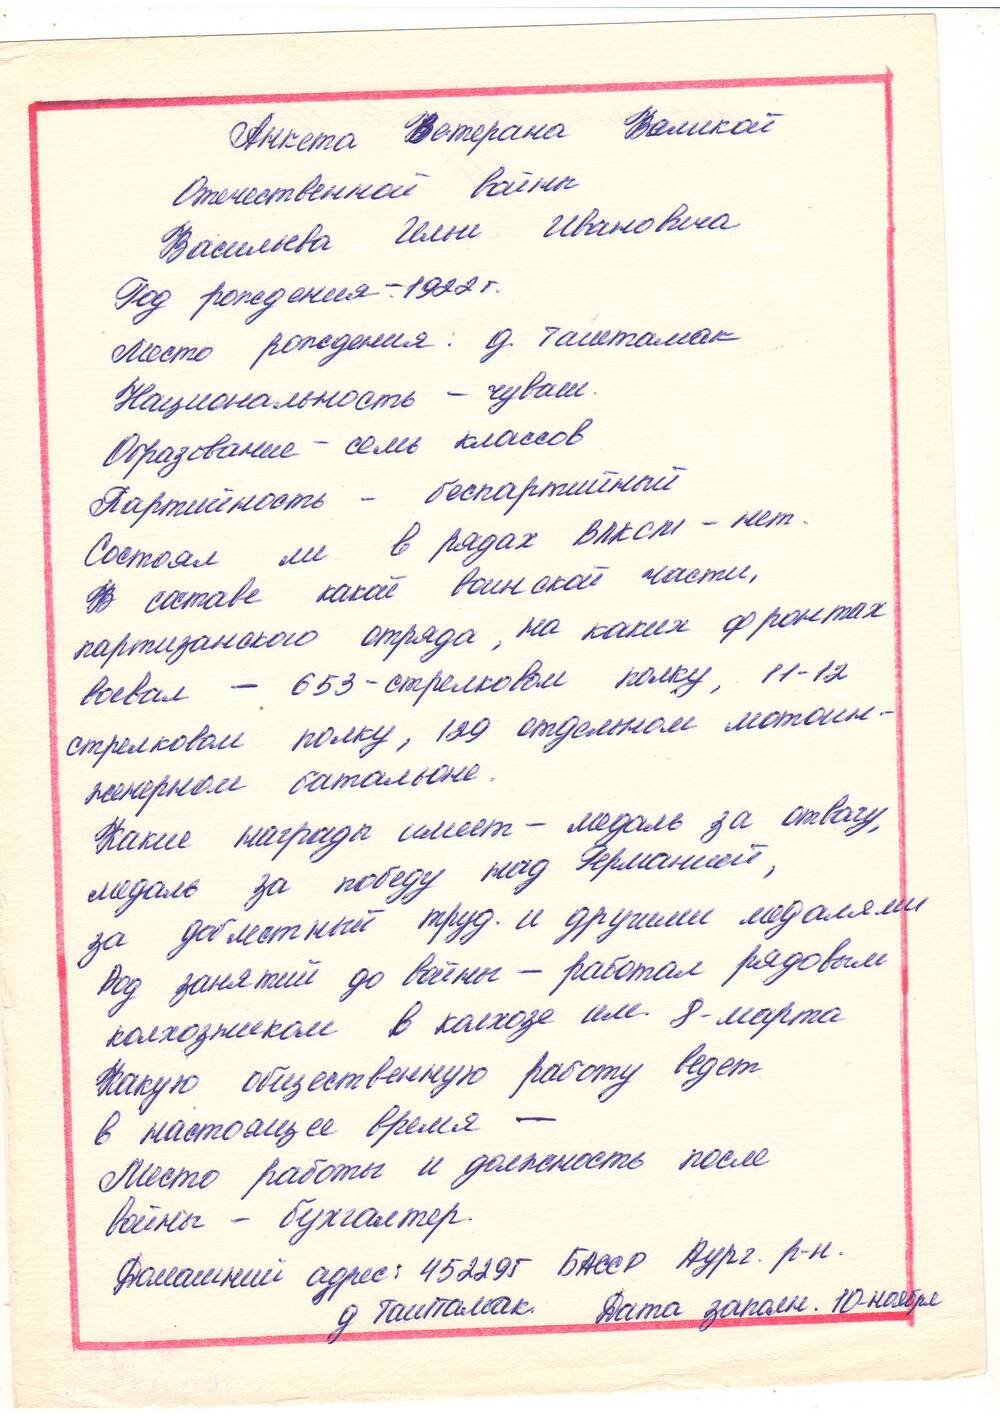 Анкета Ветерана Великой
Отечественной войны
Васильева Ильи Ивановича
Год рождения – 1922 г.
Место рождения: д. Таштамак
Национальность – чуваш.
Образование – семь классов
Партийность – беспартийный
Состоял ли в рядах ВЛКСМ – нет.
В составе какой воинской части,
партизанского отряда, на каких фронтах
воевал – 653-стрелковом полку, 11-12
стрелковом полку, 129 отдельном мотоин-
женерном батальоне.
Какие награды имеет – медаль за отвагу,
медаль за победу над Германией,
за доблестный труд. и другими медалями
Род занятий до войны – работал рядовым
колхозником в колхозе им. 8-марта
Какую общественную работу ведет
в настоящее время —
Место работы и должность после
войны – бухгалтер.
Домашний адрес: 452295 БАССР Аург. р-н.
д Таштамак. Дата заполн. 10-ноября